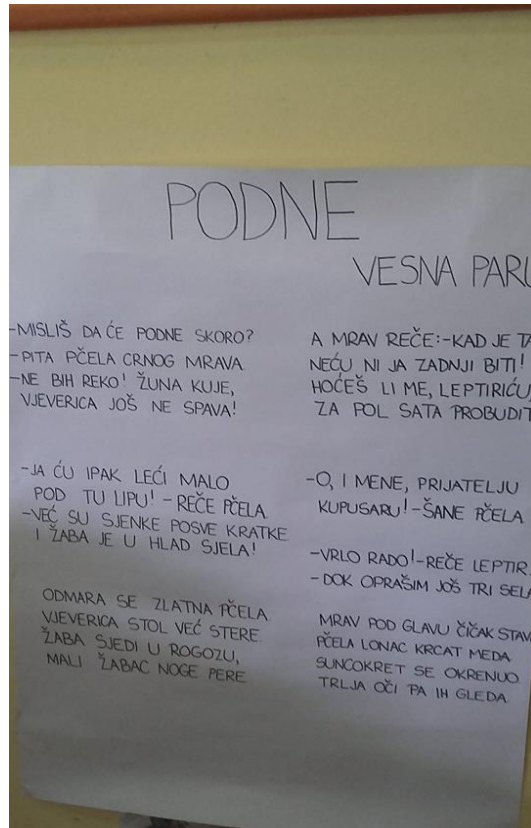 PODNE
VESNA PARU
-MISLIŠ DA ĆE PODNE SKORO?
-PITA PČELA CRNOG MRAVA
-NE BIH REKO! ŽUNA KUJE,
VJEVERICA JOŠ NE SPAVA!
-JA ĆU IPAK LEĆI MALO
POD TU LIPU! -REČE PČELA
-VEĆ SU SJENKE POSVE KRATKE
I ŽABA JE U HLAD SJELA!
ODMARA SE ZLATNA PČELA
VJEVERICA STOL VEĆ STERE
ŽABA SJEDI U ROGOZU,
MALI ŽABAC NOGE PERE
A MRAV REČE:-KAD JE TA
NEĆU NI JA ZADNJI BITI!
HOĆEŠ LI ME, LEPTIRIĆU,
ZA POL SATA PROBUDIT
-O, I MENE, PRIJATELJU
KUPUSARU!-ŠANE PČELA
-VRLO RADO!-REČE LEPTIR.
- DOK OPRAŠIM JOŠ TRI SELA
MRAV POD GLAVU ČIČAK STAV
PČELA LONAC KRCAT MEDA
SUNCOKRET SE OKRENUO
TRLJA OČI PA IH GLEDA